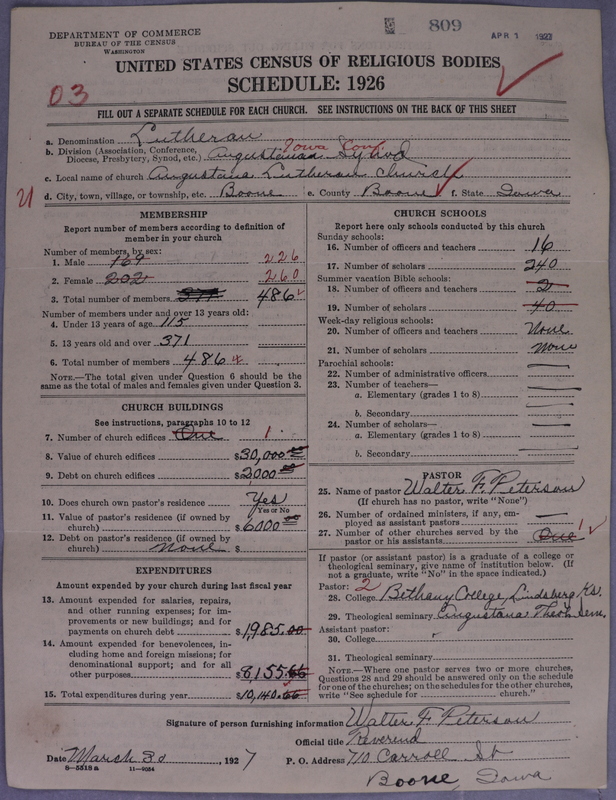 DEPARTMENT OF COMMERCE
BUREAU OF THE CENSUS
WASHINGTON
809
APR 1 1927
UNITED STATES CENSUS OF RELIGIOUS BODIES
SCHEDULE: 1926
03
FILL OUT A SEPARATE SCHEDULE FOR EACH CHURCH. SEE INSTRUCTIONS ON THE BACK OF THIS SHEET
a. Denomination Lutheran
b. Division (Association, Conference, Iowa Conf.
Diocese, Presbytery, Synod, etc.) Augustanan Synod
c. Local name of church Augustana Lutheran Church
21 d. City, town, village, or township, etc. Boone e. County Boone f. State Iowa
MEMBERSHIP
Report number of members according to definition of
member in your church
Number of members by sex:
1. Male 169 226
2. Female 202 260
3. Total number of members 371 486
Number of members under and over 13 years old:
4. Under 13 years of age 115
5. 13 years old and over 371
6. Total number of members 486
NOTE.—The total given under Question 6 should be
the same as the total of males and females given under Question 3.
CHURCH BUILDINGS
See instructions, paragraphs 10 to 12
7. Number of church edifices One 1
8. Value of church edifices $30,000.00
9. Debt on church edifices $2000.00
10. Does church own pastor's residence Yes
Yes or No
11. Value of pastor's residence (if owned by
church) $6000.00
12. Debt on pastor's residence (if owned by
church) None $
EXPENDITURES
Amount expended by your church during last fiscal year
13. Amount expended for salaries, repairs,
and other running expenses; for im-
provements or new buildings; and for
payments on church debt $1,985.00
14. Amount expended for benevolences, in-
cluding home and foreign missions; for
denominational support; and for all
other purposes $8,155.66
15. Total expenditures during year $10,140.66
CHURCH SCHOOLS
Report here only schools conducted by this church
Sunday schools:
16. Number of officers and teachers 16
17. Number of scholars 240
Summer vacation Bible schools:
18. Number of officers and teachers 2
19. Number of scholars 40
Week-day religious schools:
20. Number of officers and teachers None
21. Number of scholars None
Parochial schools:
22. Number of administrative officers
23. Number of teachers—
a. Elementary (grades 1 to 8)
b. Secondary
24. Number of scholars—
a. Elementary (grades 1 to 8)
b. Secondary
PASTOR
25. Name of pastor Walter F. Peterson
(If church has no pastor, write "None")
26. Number of ordained ministers, if any, em-
ployed as assistant pastors
27. Number of other churches served by the
pastor or his assistants One 1
If pastor (or assistant pastor) is a graduate of a college or
theological seminary, give name of institution below. (If
not a graduate, write "No" in the space indicated.)
Pastor: 2
28. College Bethany College, Lindsborg, Ks.
29. Theological seminary Augustana Theol. Sem.
Assistant pastor:
30. College
31. Theological seminary
NOTE.—Where one pastor serves two or more churches,
Questions 28 and 29 should be answered only on the schedule
for one of the churches; on the schedules for the other churches,
write "See schedule for church."
Signature of person furnishing information Walter F. Peterson
Official title Reverend
Date March 30, 1927 P. O. Address 710 Carroll St
8—5318 a 11—9054
Boone, Iowa